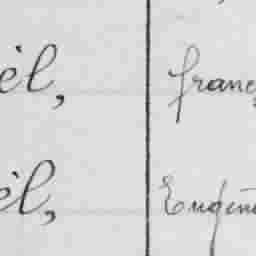 èl, franç
èl, Eugén